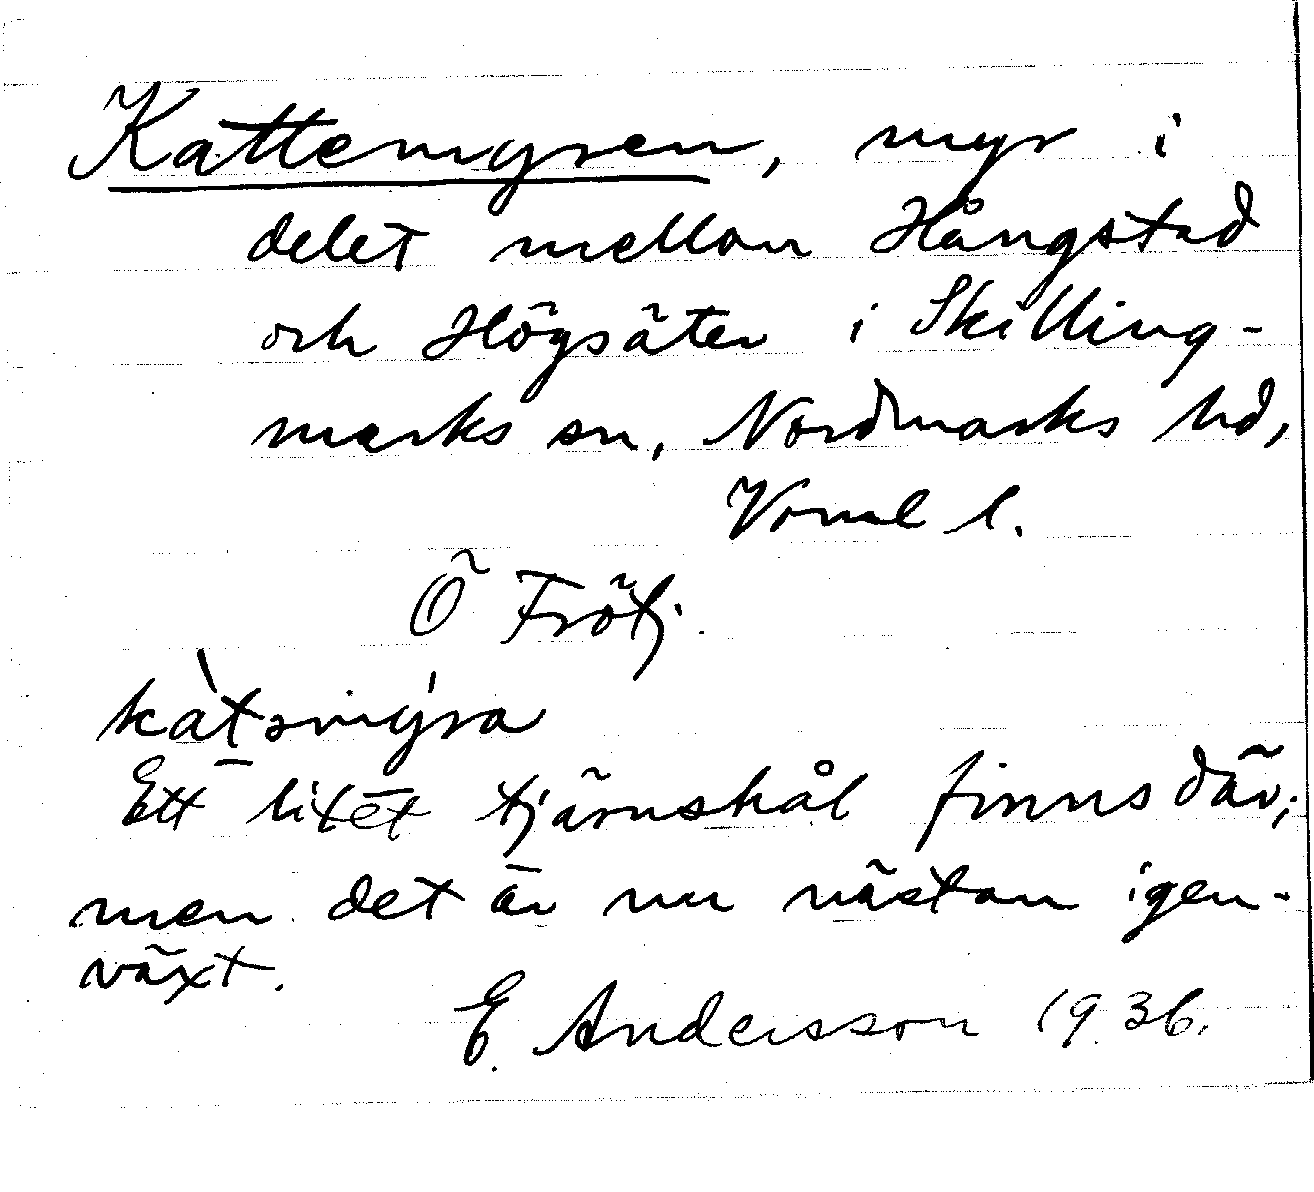 Kattemyren, myr i
delet mellan Hångstad
och Högsäter i Skilling-
marks sn, Nordmarks hd,
Vrml l.
Ö Frötj.
kàtəmýra
Ett litet tjärnshål finns där,
men det är nu nästan igen-
växt.
E. Andersson 1936.